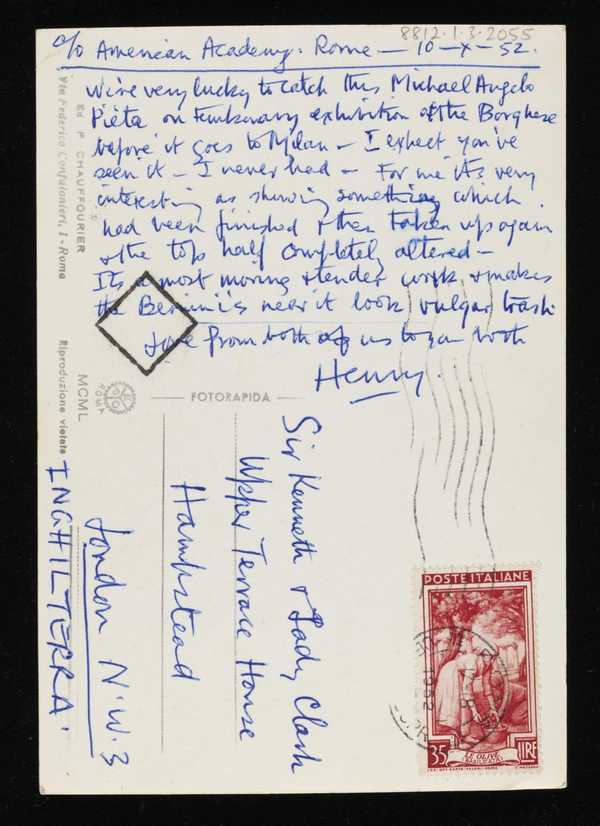 8812.1.3.2055
c/o American Academy. Rome — 10-X-52.
We're very lucky to catch this Michael Angelo
Piéta on temporary exhibition at the Borghese
before it goes to Milan — I expect you've
seen it — I never had — For me it's very
interesting as showing something which
had been finished & then taken up again
& the top half completely altered —
It's a most moving & tender work & makes
the Bernini's near it look vulgar trash
Love from both of us to you both
Henry.
Ed. P. CHAUFFOURIER
Via Federico Confalonieri, 1 - Roma
Riproduzione vietata
MCML
ROMA
FOTORAPIDA
Sir Kenneth & Lady Clark
Upper Terrace House
Hampstead
London N.W.3
INGHILTERRA.
POSTE ITALIANE
35 LIRE
1952